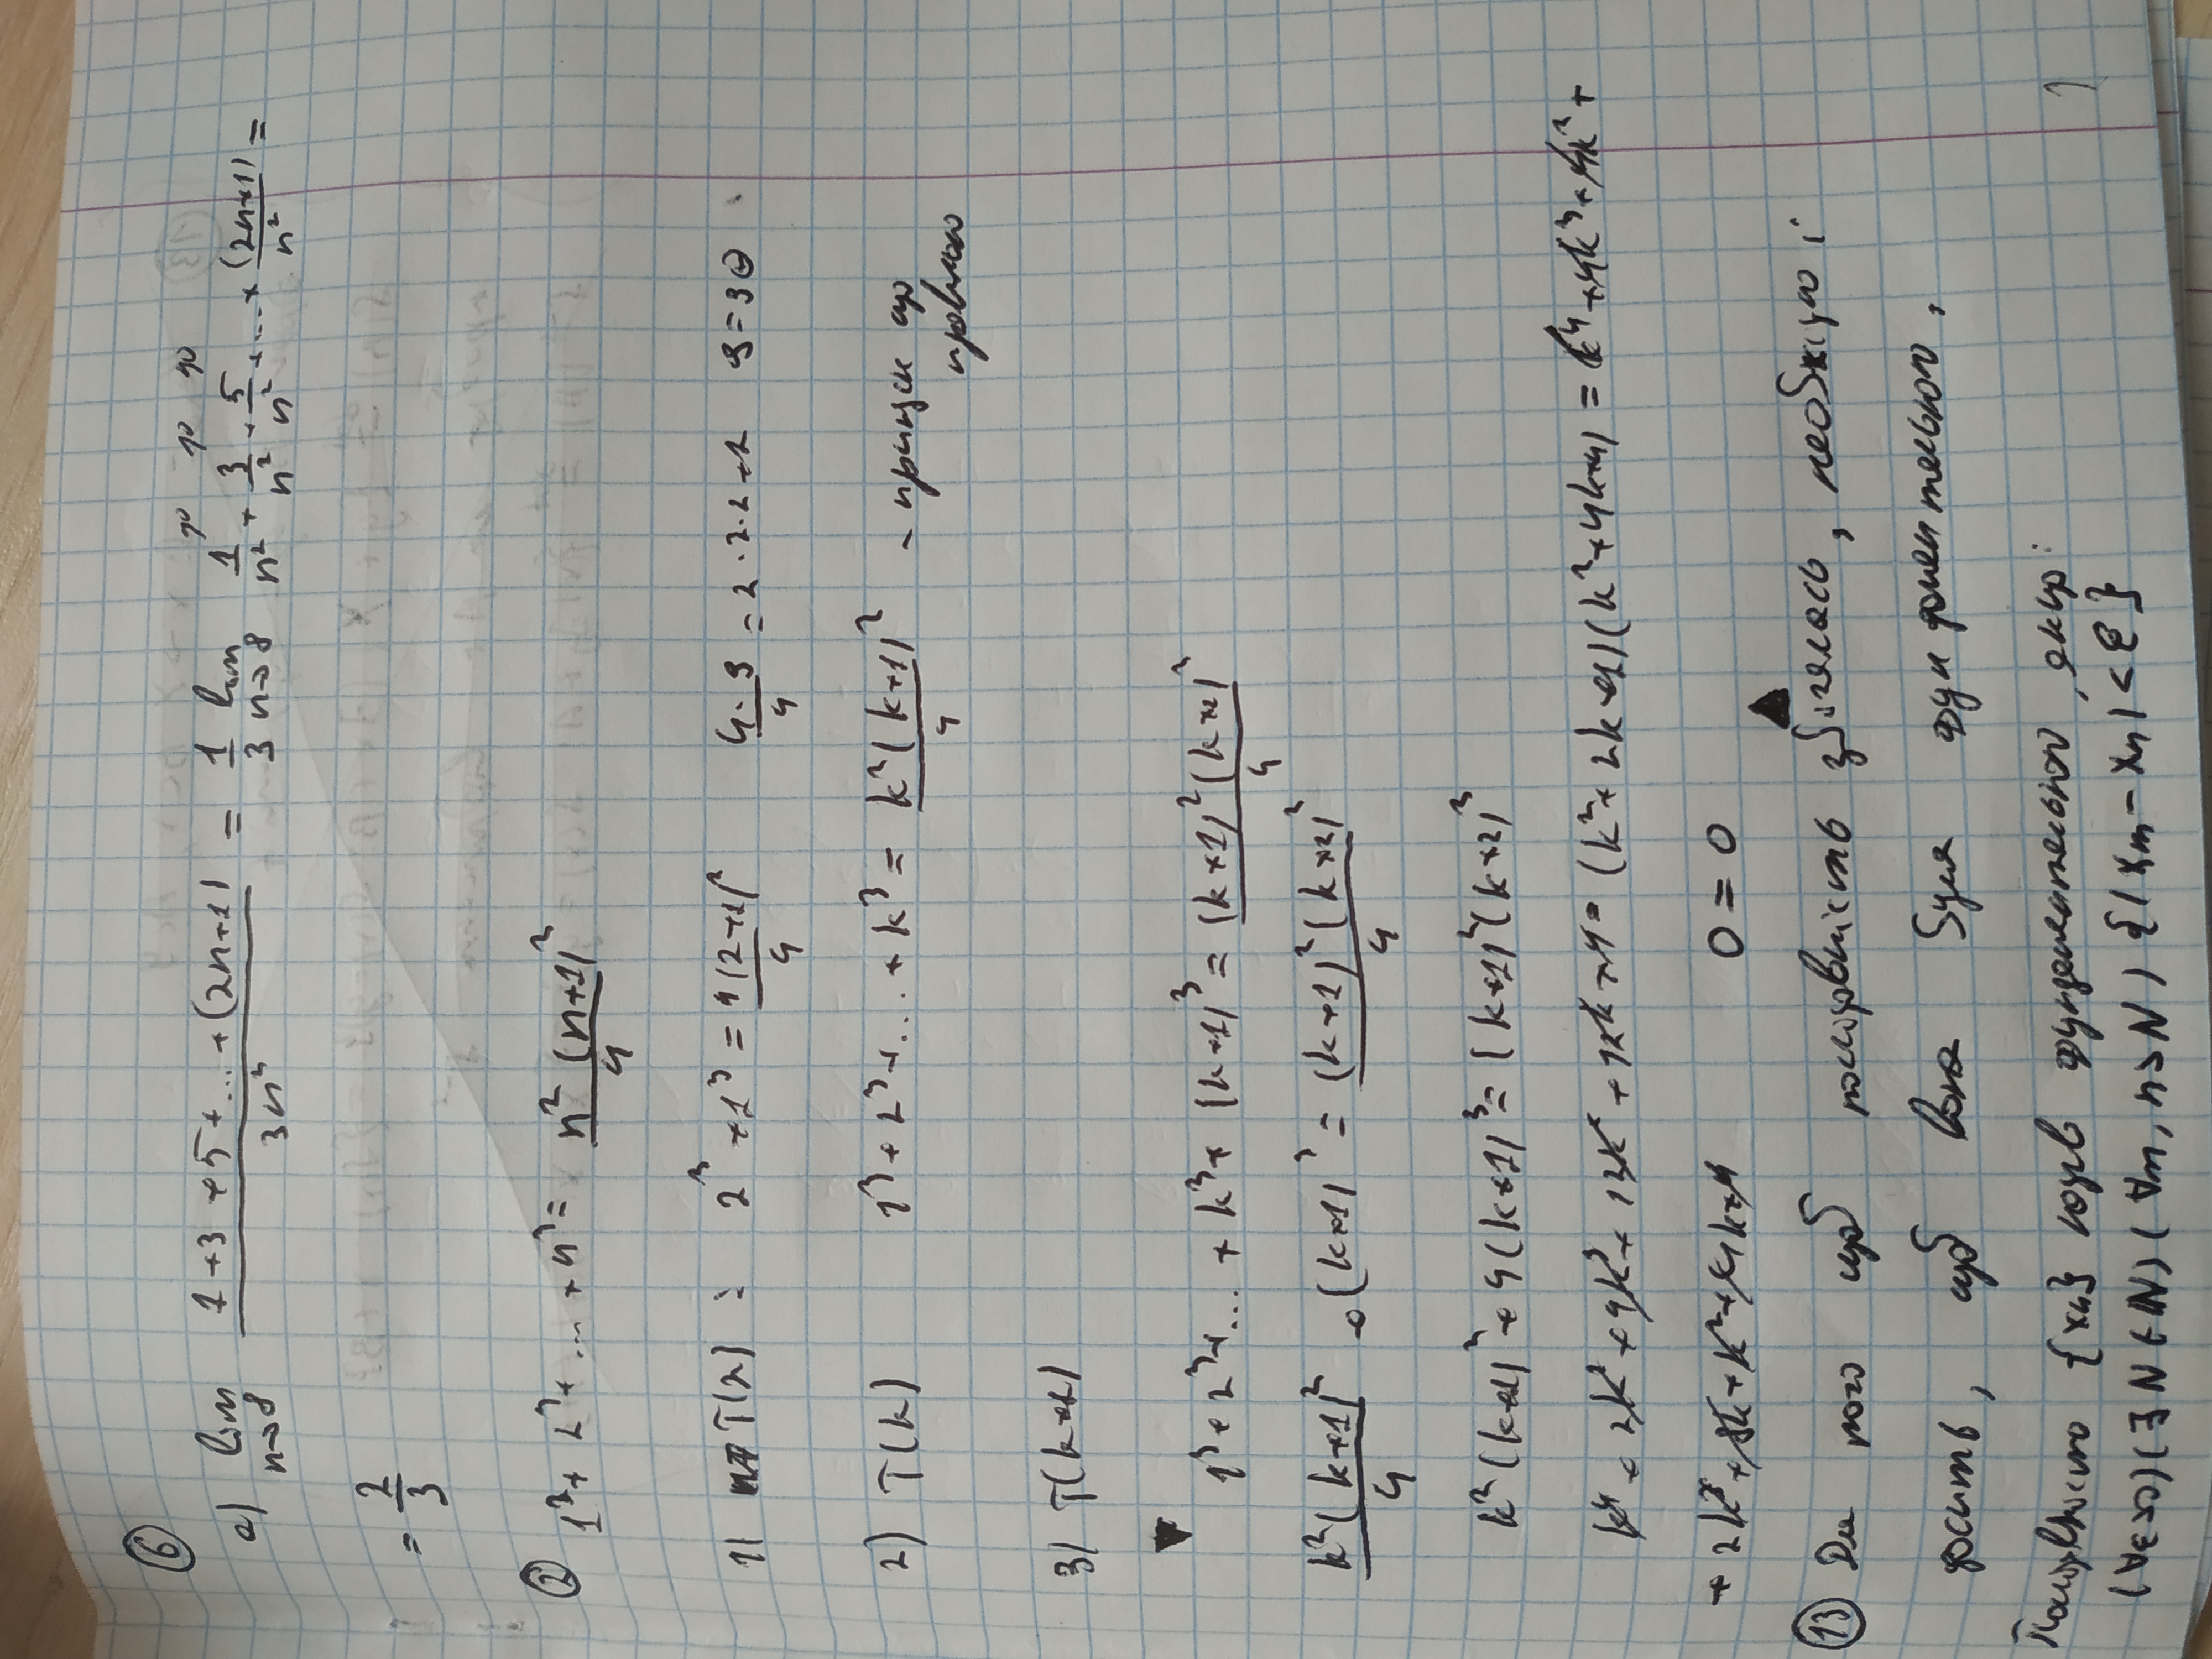 6
a) lim n→∞ (1+3+5+...+(2n+1))/(3n²) = 1/3 lim n→∞ 1/n² + 3/n² + 5/n² + ... + (2n+1)/n² =
= 2/3
2 1³ + 2³ + ... + n³ = n²(n+1)²/4
1) T(2) : 2³ + 1³ = 4(2+1)²/4 4·9/4 = 2·2·2+1 9=9
2) T(k) 1³ + 2³ + ... + k³ = k²(k+1)²/4 - що
правильно
3) T(k+1)
1³ + 2³ + ... + k³ + (k+1)³ = (k+1)²(k+2)²/4
k²(k+1)²/4 + (k+1)³ = (k+1)²(k+2)²/4
k²(k+1)² + 4(k+1)³ = (k+1)²(k+2)²
k⁴ + 2k³ + 4k³ + 12k² + 12k + 4 = (k²+2k+1)(k²+4k+4) = k⁴ + 4k³ + 4k² +
+ 2k³ + 8k² + 8k + k² + 4k + 4 0 = 0
13 Для того щоб послідовність збігалась, необхідно і
досить, щоб вона була фундаментальною,
Послідовність {xn} фундаментальною, якщо:
(∀ε>0)(∃N∈ℕ)(∀m,n>N){|xm-xn|<ε}